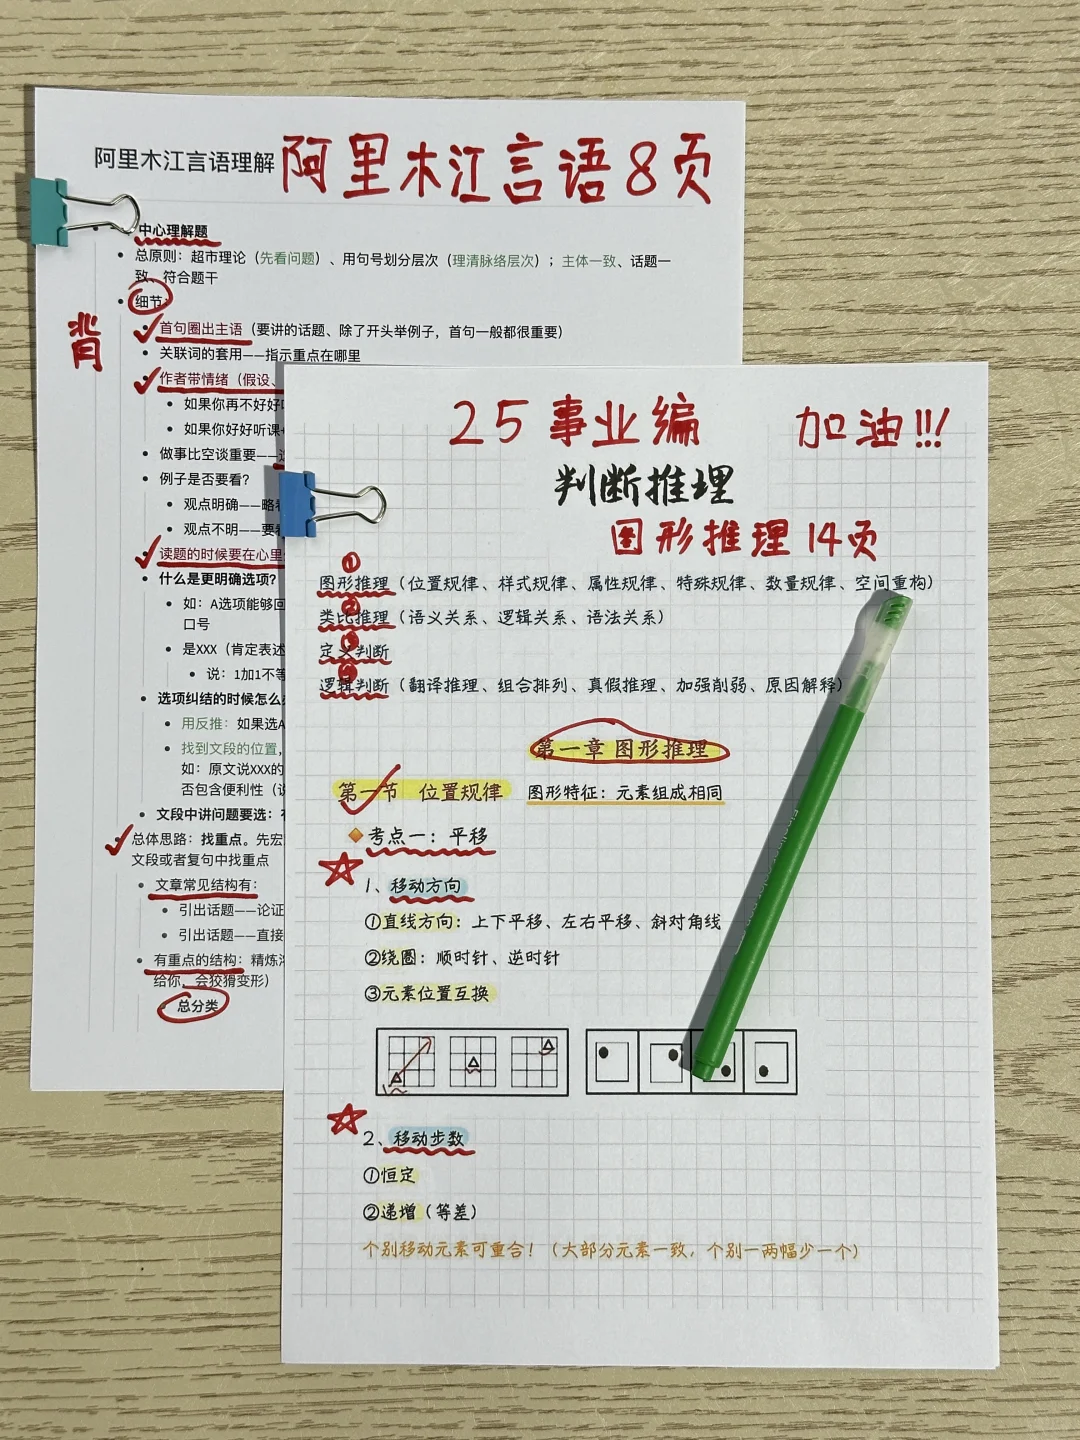 阿里木江言语理解
阿里木江言语8页
中心理解题
总原则：超市理论（先看问题）、用句号划分层次（理清脉络层次）；主体一致、话题一
致、符合题干
细节：
背
首句圈出主语（要讲的话题、除了开头举例子，首句一般都很重要）
关联词的套用——指示重点在哪里
作者带情绪（假设、
如果你再不好好
如果你好好听课
做事比空谈重要——
例子是否要看？
观点明确——略
观点不明——要看
读题的时候要在心里
什么是更明确选项？
如：A选项能够回
口号
是XXX（肯定表述
说：1加1不等
选项纠结的时候怎么
用反推：如果选A
找到文段的位置，
如：原文说XXX的
否包含便利性（说
文段中讲问题要选：
总体思路：找重点。先宏
文段或者复句中找重点
文章常见结构有：
引出话题——论证
引出话题——直接
有重点的结构：精炼
给你，会狡猾变形）
总分类
25事业编 加油!!!
判断推理
图形推理14页
①
图形推理（位置规律、样式规律、属性规律、特殊规律、数量规律、空间重构）
②
类比推理（语义关系、逻辑关系、语法关系）
③
定义判断
④
逻辑判断（翻译推理、组合排列、真假推理、加强削弱、原因解释）
第一章 图形推理
第一节 位置规律 图形特征：元素组成相同
考点一：平移
1、移动方向
①直线方向：上下平移、左右平移、斜对角线
②绕圈：顺时针、逆时针
③元素位置互换
2、移动步数
①恒定
②递增（等差）
个别移动元素可重合！（大部分元素一致，个别一两幅少一个）